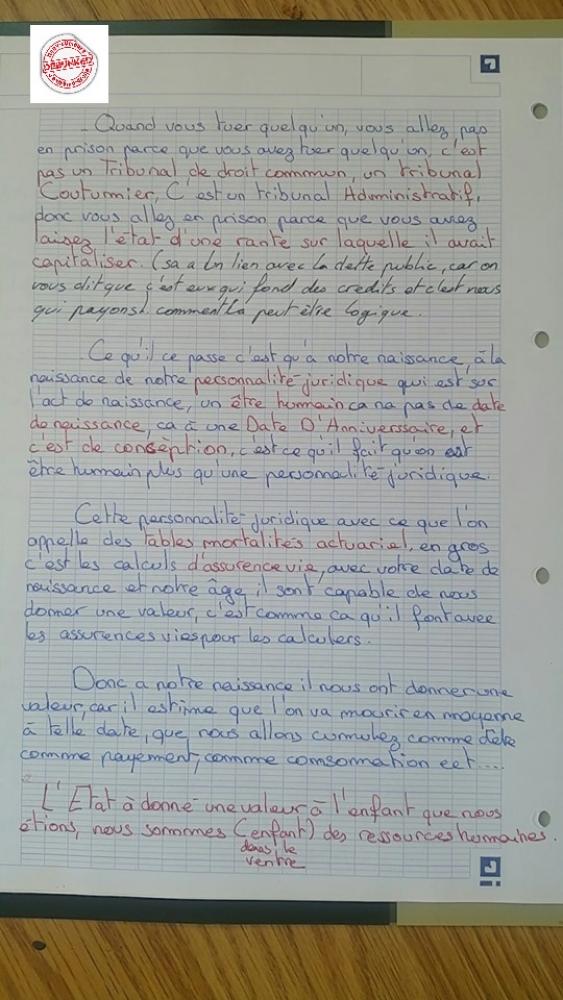 Quand vous tuer quelqu'un, vous allez pas
en prison parce que vous avez tuer quelqu'un, c'est
pas un Tribunal de droit commun, un tribunal
Coutumier, C'est un tribunal Administratif,
donc vous allez en prison parce que vous avez
l'état d'une rante sur laquelle il avait
capitaliser. (sa a un lien avec la dette public, car on
vous dit que c'est eux qui fond des credits et c'est nous
qui payons). comment ça peut être logique.
Ce qu'il ce passe c'est qu'à notre naissance, à la
naissance de notre personnalité-juridique qui est sur
l'act de naissance, un être humain ca na pas de date
de naissance, ca à une Date D'Anniverssaire, et
c'est de consèption, c'est ce qu'il fait qu'on est
être humain plus qu'une personnalité-juridique.
Cette personnalité-juridique avec ce que l'on
appelle des Tables mortalités actuariel, en gros
c'est les calculs d'assurence vie, avec votre date de
naissance et notre âge, il sont capable de nous
donner une valeur, c'est comme ca qu'il font avec
les assurences vies pour les calculers.
Donc a notre naissance il nous ont donner une
valeur, car il estime que l'on va mourir en moyenne
à telle date, que nous allons cumulez comme dette
comme payement, comme comsommation ect....
L'Etat à donné une valeur à l'enfant que nous
étions, nous sommes (enfant) des ressources humaines.
dans le
ventre